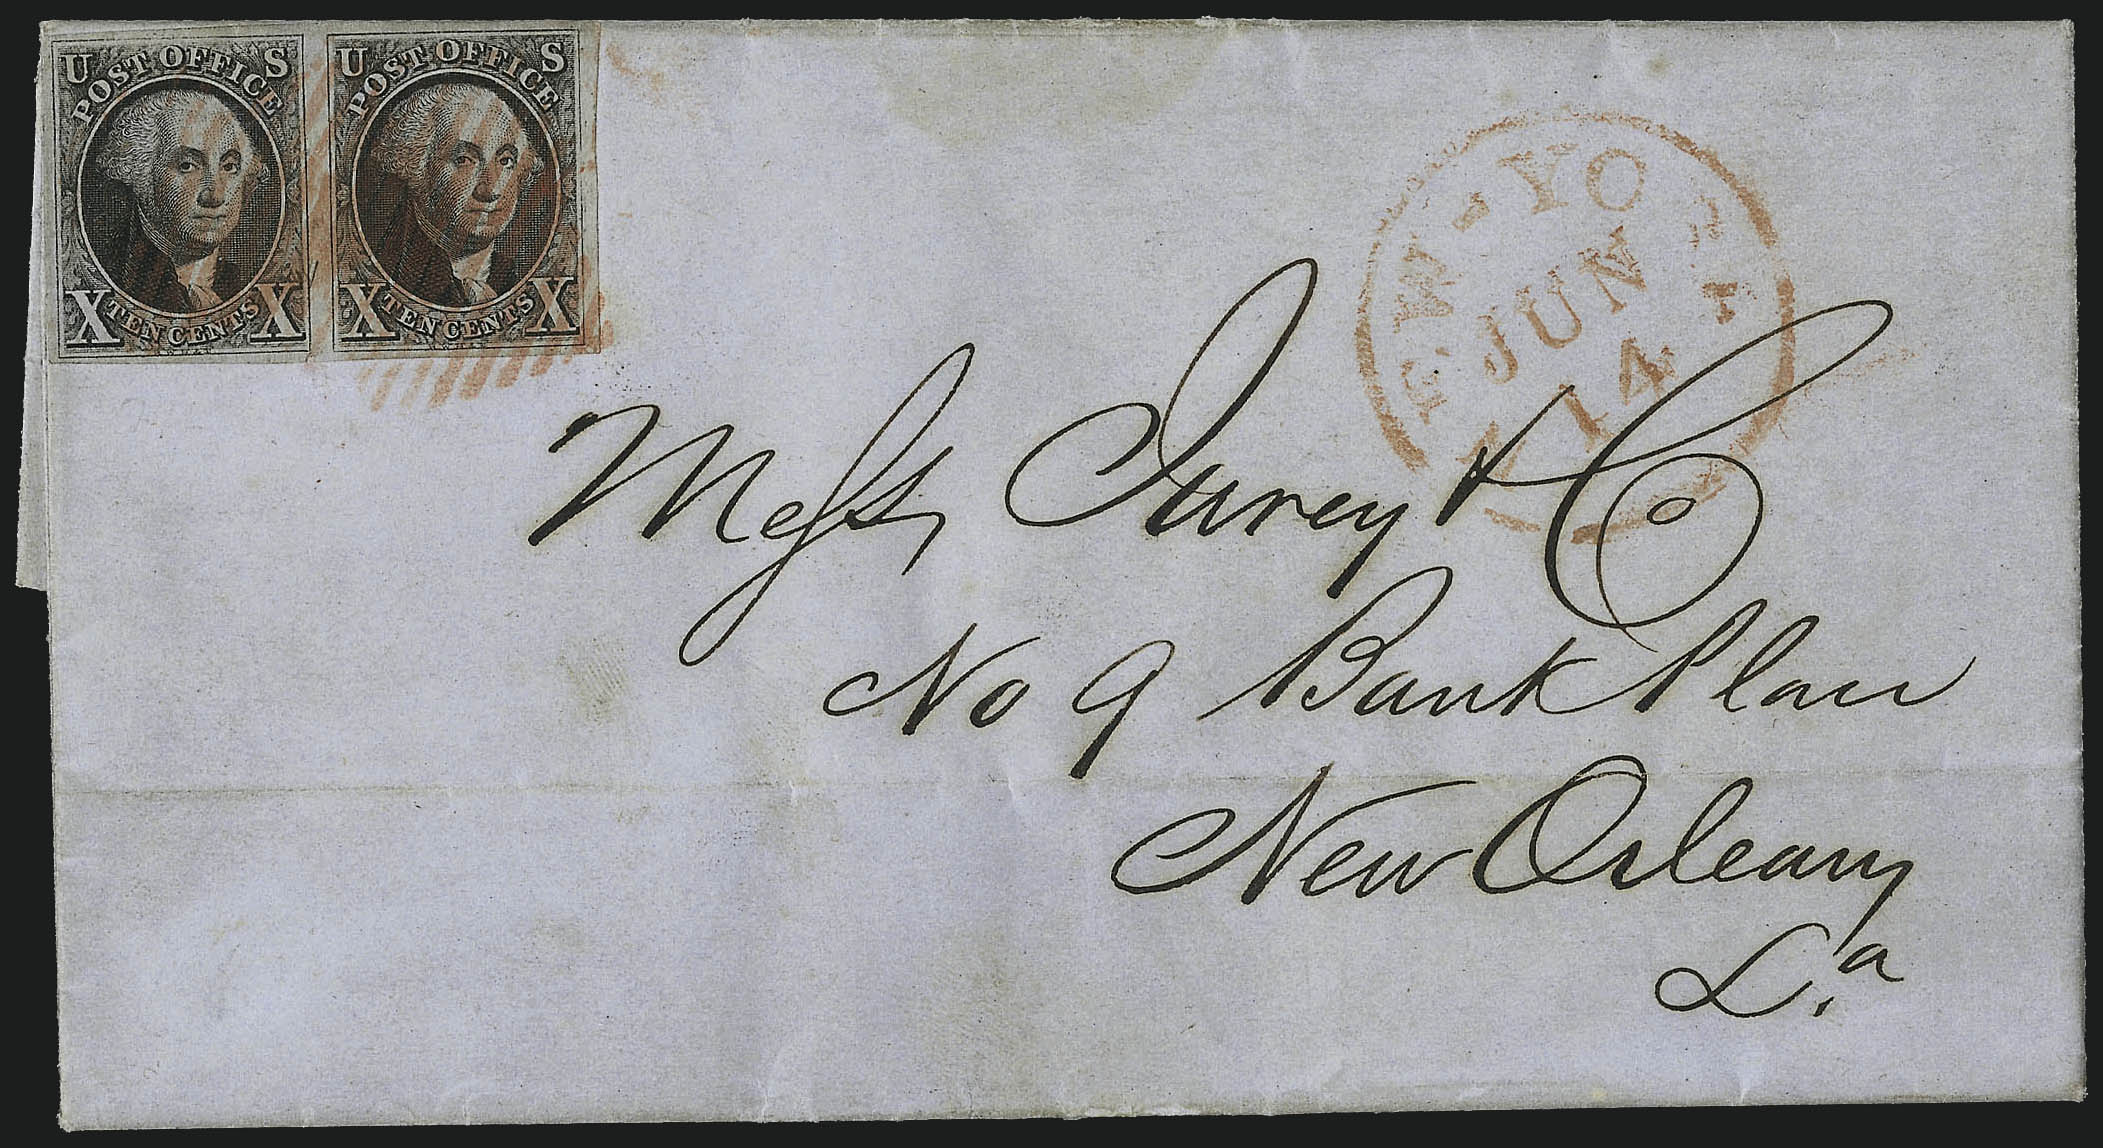 U S
POST OFFICE
X TEN CENTS X
U S
POST OFFICE
X TEN CENTS X
EW-YO
JUN
14
Messs, Jurey & Co
No 9 Bank Place
New Orleans
La.